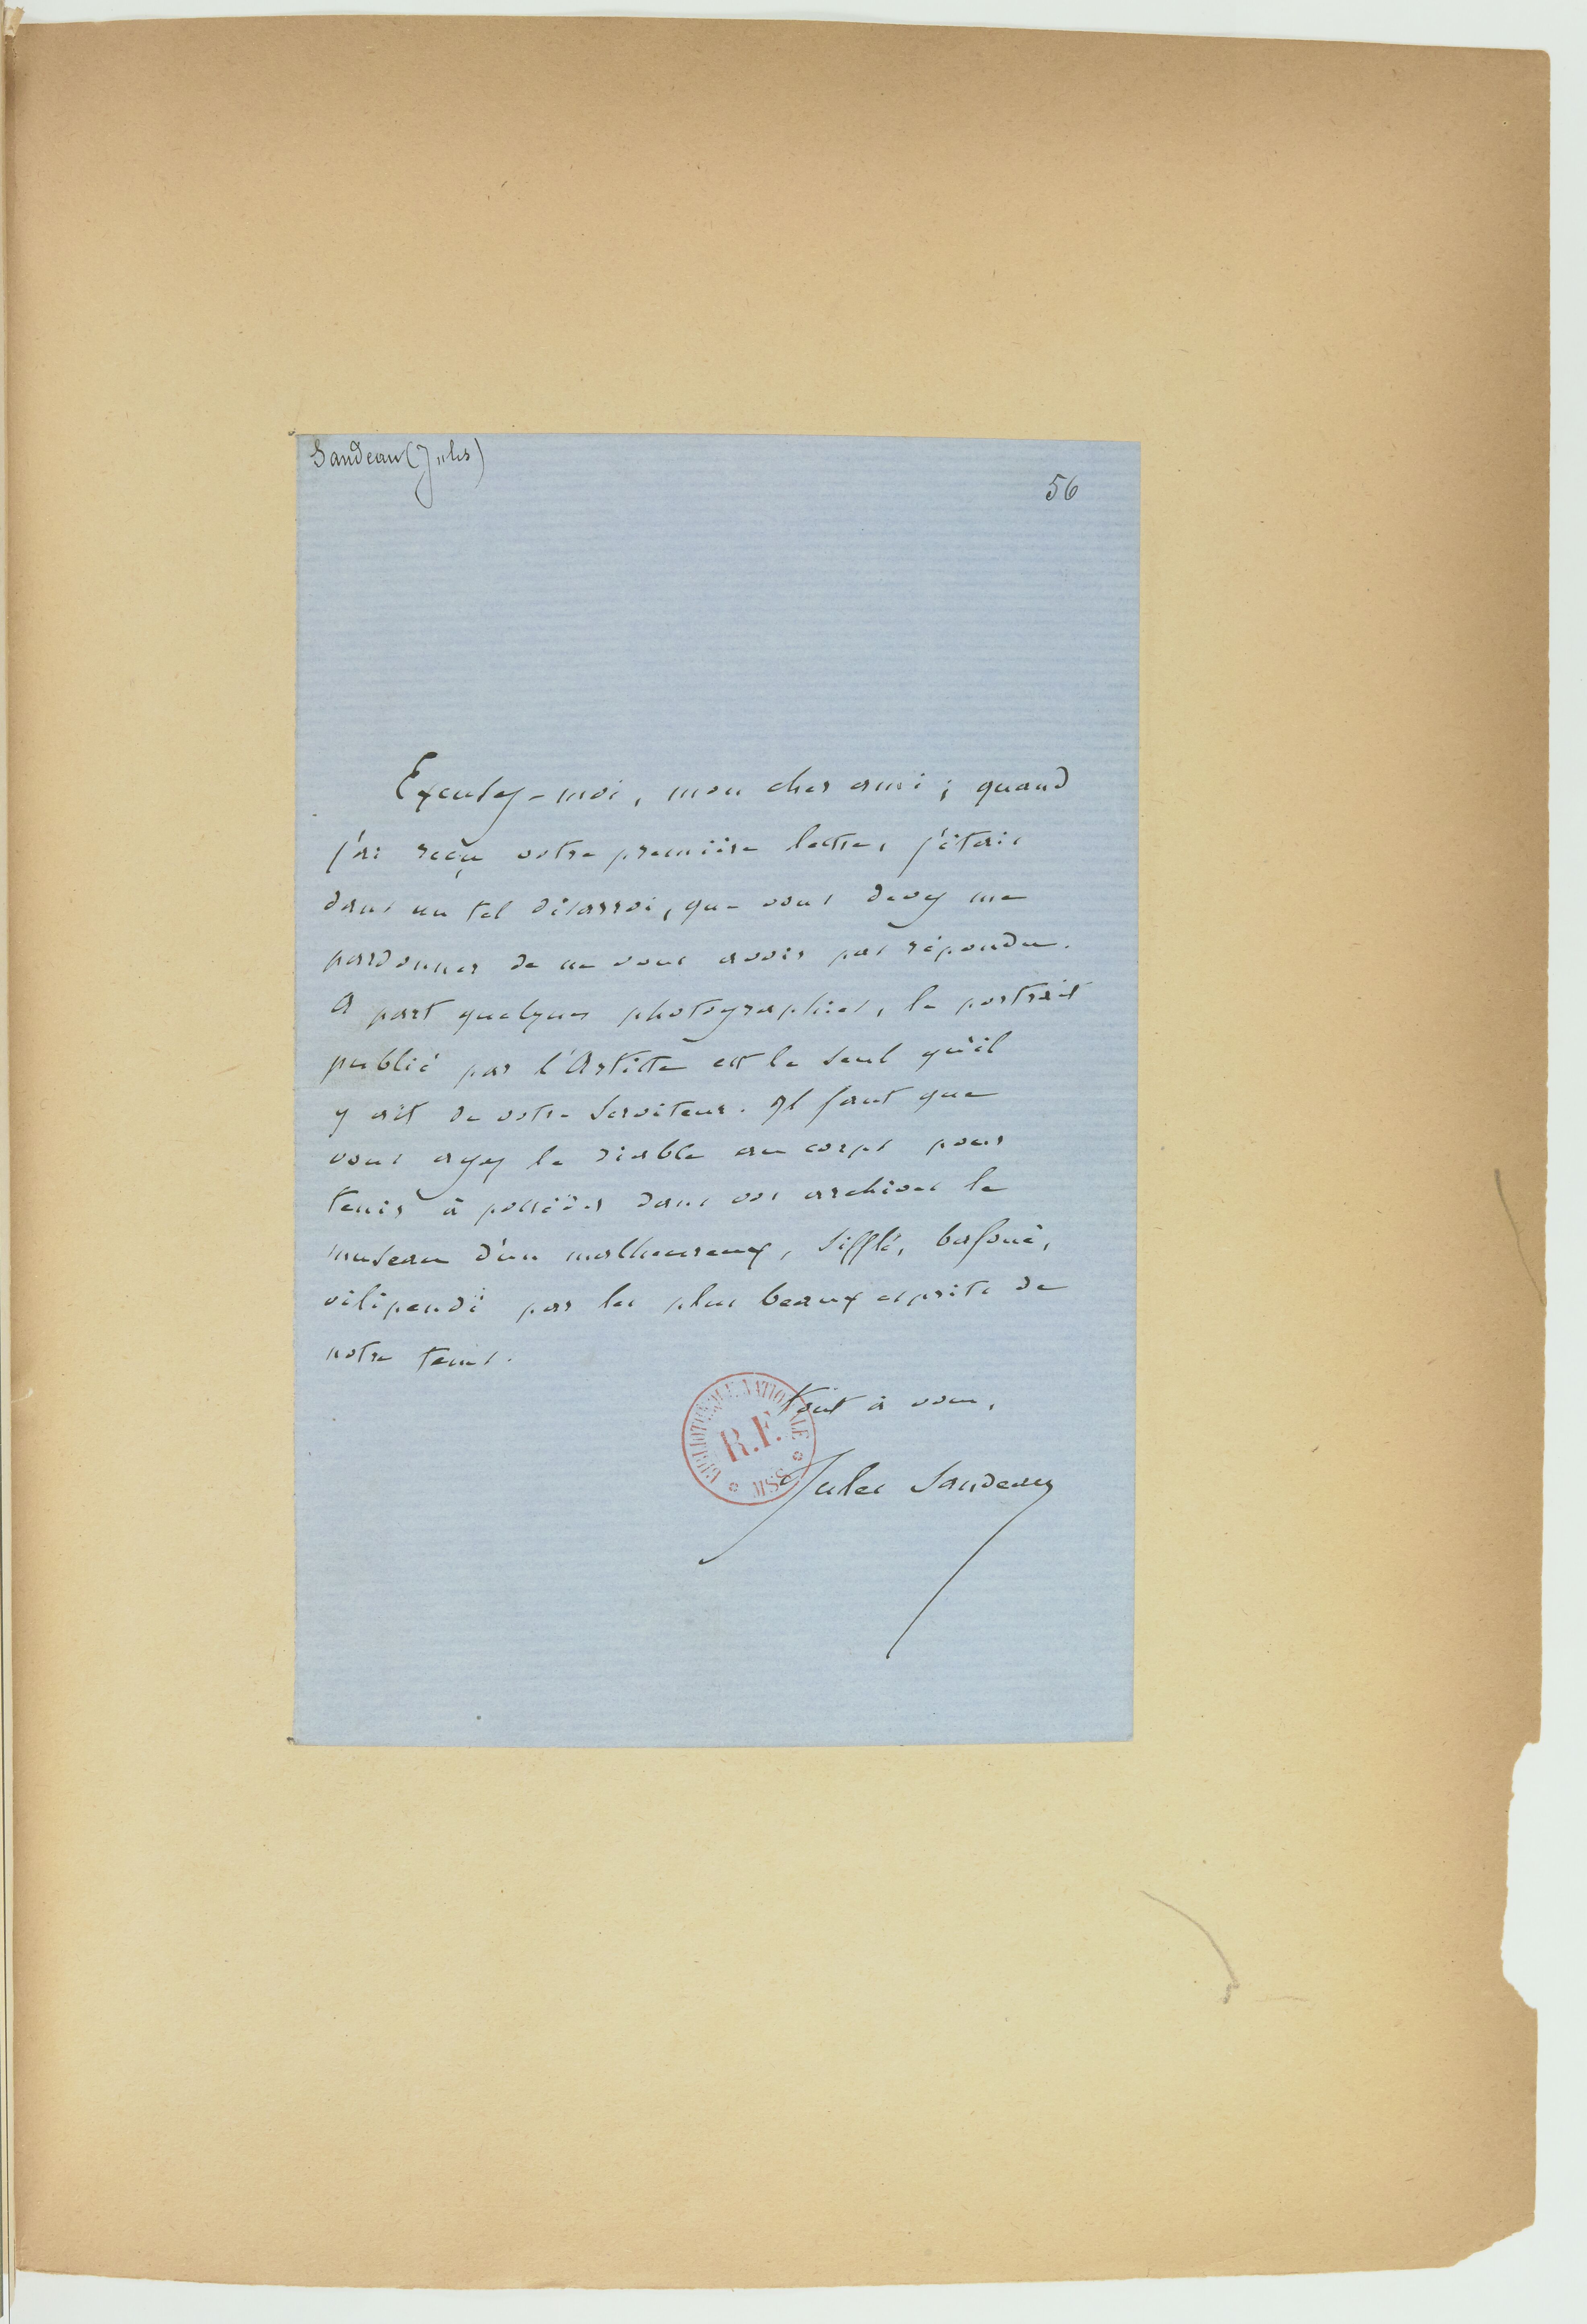 Sandeau (Jules)
56
Excusez-moi, mon cher ami ; quand
j'ai reçu votre première lettre, j'étais
dans un tel désarroi, que vous devez me
pardonner de ne vous avoir pas répondu.
A part quelques photographies, le portrait
publié par l'Artiste est le seul qu'il
y ait de votre serviteur. Il faut que
vous ayez le diable au corps pour
tenir à posséder dans vos archives le
museau d'un malheureux, sifflé, bafoué,
vilipendé par les plus beaux esprits de
notre tems.
Tout à vous,
BIBLIOTHEQUE NATIONALE
R.F.
MSS
Jules Sandeau